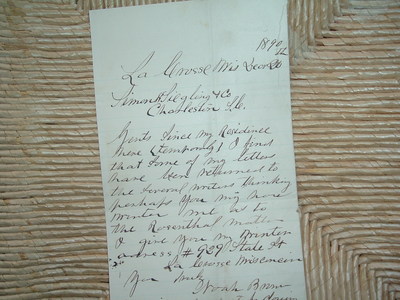 1890
La Crosse Wis Decr 30
Simon Siegling & Co
Charleston Ills.
Gents Since my Residence
here (temporaly) I find
that some of my letters
have been returned to
the Several writers thinking
perhaps you my have
written me as to
the Rosenthal matter
I give you my Winter
address # 929 State St
La Crosse Wisconsin
You
Noah